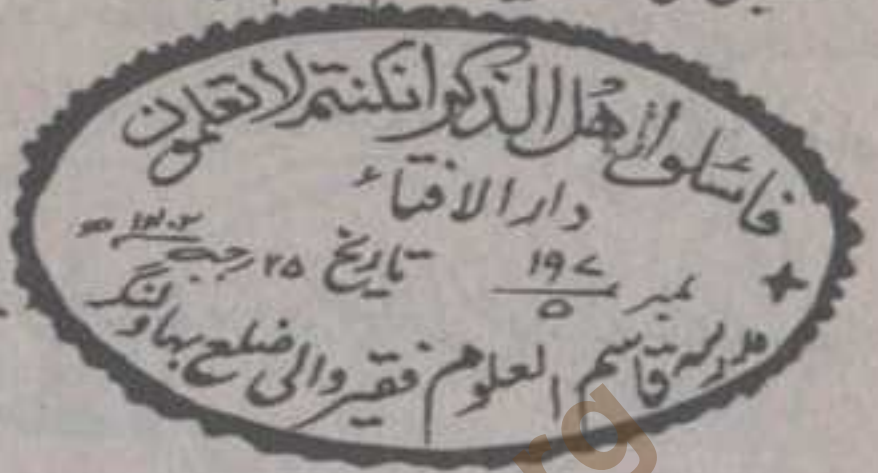 فاسئلوا اهل الذکر ان کنتم لا تعلمون
دار الافتاء
نمبر ۱۹۷/۵ تاریخ ۲۵ رجب ۱۴۰۲ھ
مدرسہ قاسم العلوم فقیر والی ضلع بہاولنگر